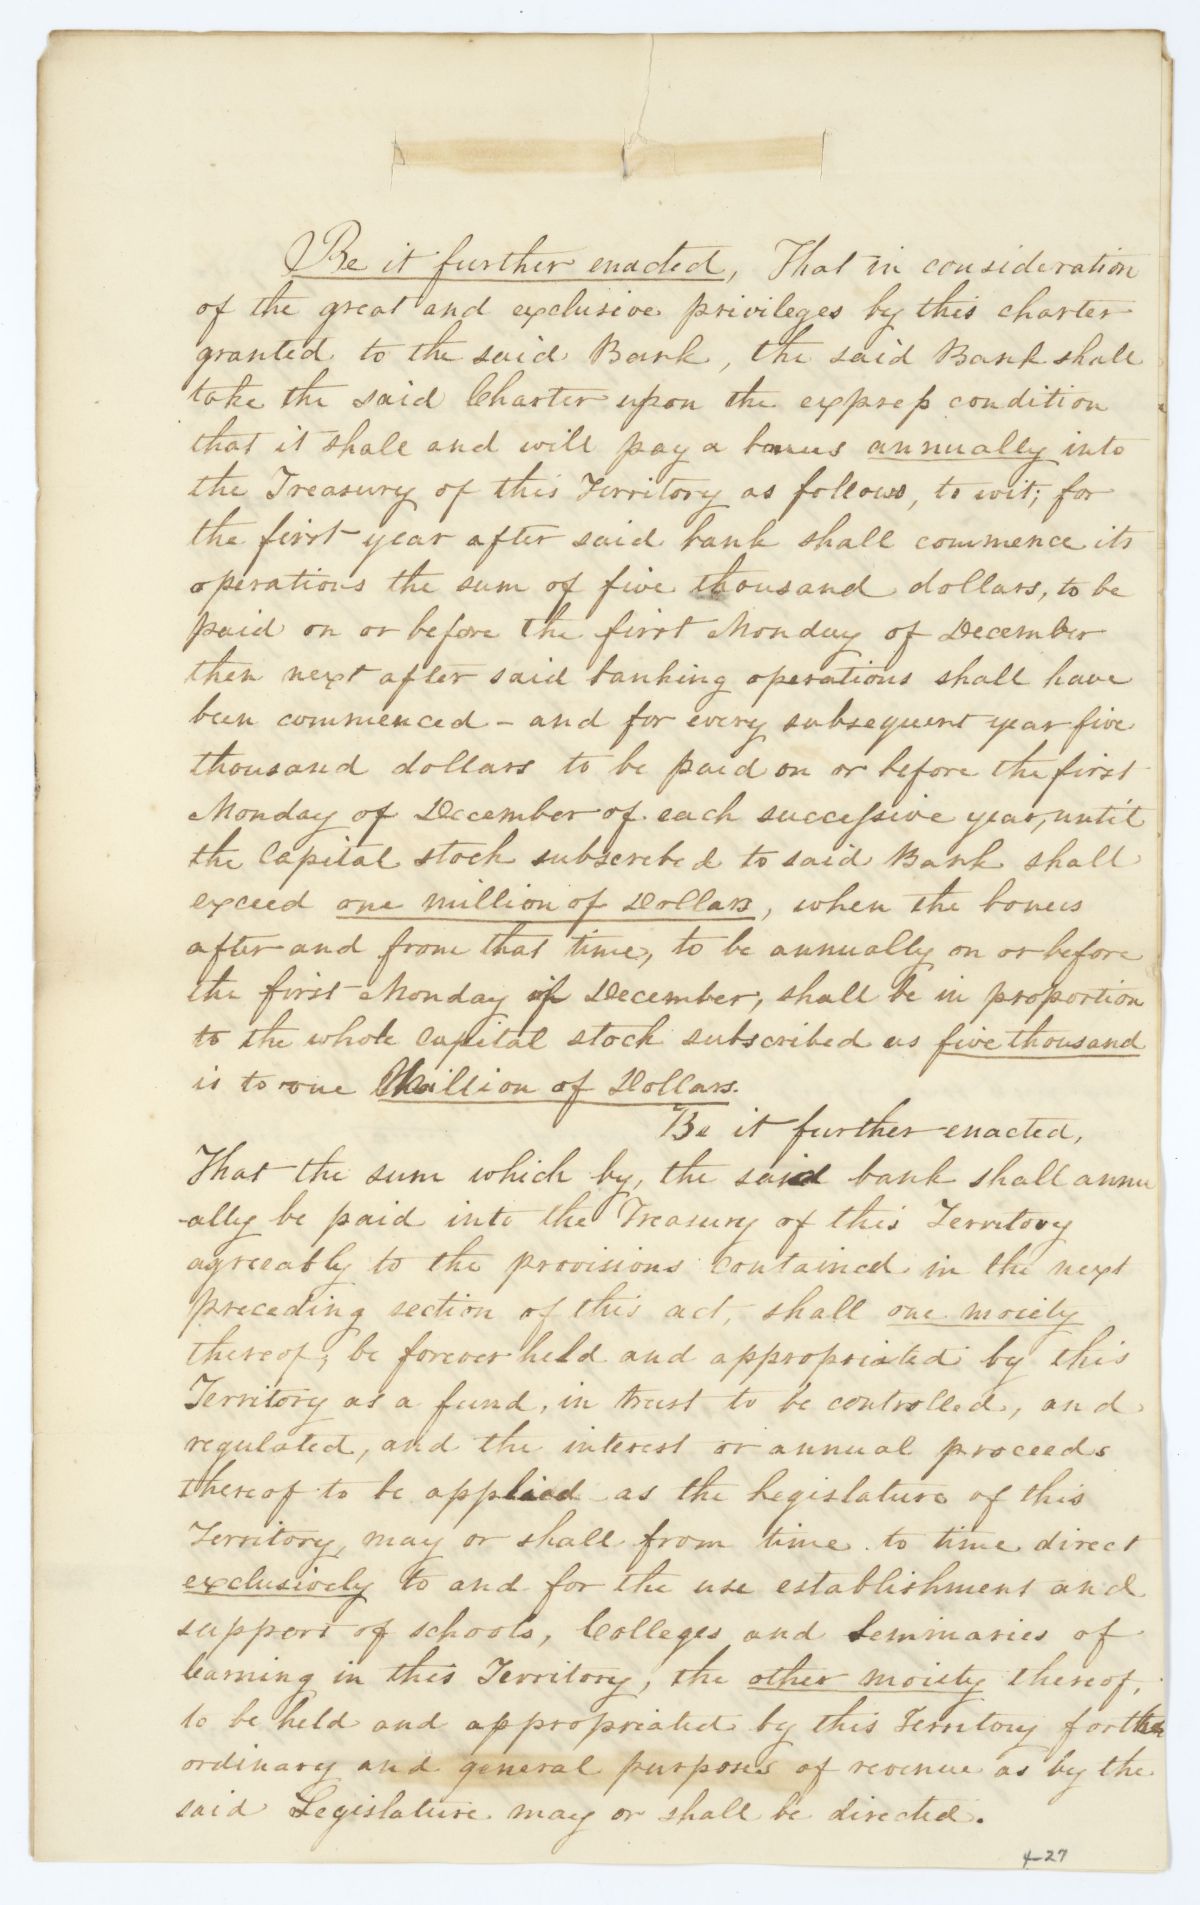 Be it further enacted, That in consideration
of the great and exclusive privileges by this charter
granted to the said Bank, the said Bank shall
take the said Charter upon the express condition
that it shall and will pay a bonus annually into
the Treasury of this Territory as follows, to wit; for
the first year after said bank shall commence its
operations the sum of five thousand dollars, to be
paid on or before the first Monday of December
then next after said banking operations shall have
been commenced - and for every subsequent year five
thousand dollars to be paid on or before the first
Monday of December of each successive year, until
the Capital stock subscribed to said Bank shall
exceed one million of Dollars, when the bonus
after and from that time, to be annually on or before
the first Monday of December, shall be in proportion
to the whole Capital stock subscribed as five thousand
is to one Million of Dollars.
Be it further enacted,
That the sum which by, the said bank shall annu
-ally be paid into the Treasury of this Territory
agreeably to the provisions contained in the next
preceding section of this act, shall one moiety
thereof, be forever held and appropriated by this
Territory as a fund, in trust to be controlled, and
regulated, and the interest or annual proceeds
thereof to be applied as the Legislature of this
Territory, may or shall from time to time direct
exclusively to and for the use establishment and
support of schools, Colleges and Seminaries of
learning in this Territory, the other moiety thereof,
to be held and appropriated by this Territory for the
ordinary and general purposes of revenue as by the
said Legislature may or shall be directed.
4-27